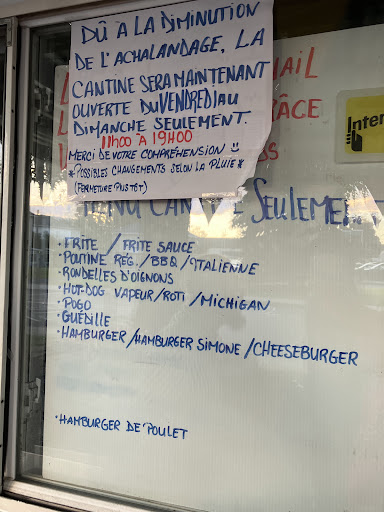 DÛ À LA DIMINUTION
DE L'ACHALANDAGE, LA
CANTINE SERA MAINTENANT
OUVERTE DU VENDREDI AU
DIMANCHE SEULEMENT.
11h00 À 19H00
MERCI DE VOTRE COMPRÉHENSION
*POSSIBLES CHANGEMENTS SELON LA PLUIE*
(FERMETURE PLUS TÔT)
Inter
MENU CANTINE SEULEMENT
• FRITE / FRITE SAUCE
• POUTINE RÉG. / BBQ / ITALIENNE
• RONDELLES D'OIGNONS
• HOT-DOG VAPEUR / ROTI / MICHIGAN
• POGO
• GUÉDILLE
• HAMBURGER / HAMBURGER SIMONE / CHEESEBURGER
• HAMBURGER DE POULET